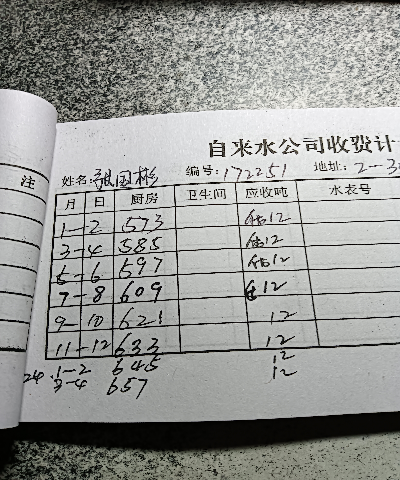 自来水公司收费计
姓名:张国彬 编号:172251 地址:2-30
注
月 日 厨房 卫生间 应收吨 水表号
1-2 573 估12
3-4 585 估12
5-6 597 估12
7-8 609 估12
9-10 621 12
11-12 633 12
24.1-2 645 12
3-4 657 12